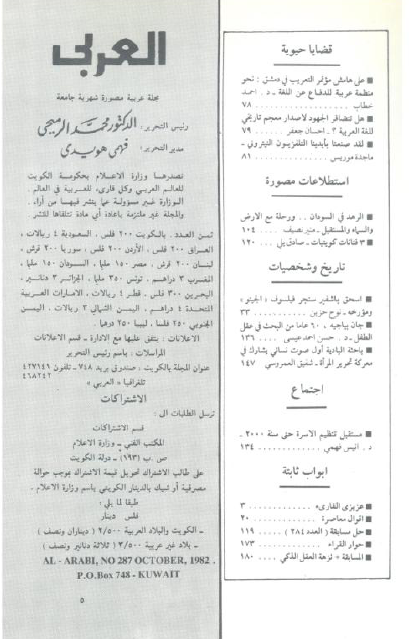 قضايا حيوية
■ على هامش مؤتمر التعريب في دمشق : نحو
منظمة عربية للدفاع عن اللغة - د . احمد
خطاب ٧٨
■ هل تتضافر الجهود لاصدار معجم تاريخي
للغة العربية ؟ - احسان جعفر ٧٩
■ لقد صنعنا بأيدينا التلفزيون النيتروني -
ماجدة موريس ٨١
استطلاعات مصورة
■ الرعد في السودان .. ورحلة مع الارض
والسماء والمستقبل - منير نصيف ١٠٤
■ ٣ فنانات كويتيات - صادق يلي ١٢٠
تاريخ وشخصيات
■ اسحق باشفير سنجر فيلسوف ، الجيتو ،
ومؤرخه - نوح حزين ٣٣
■ جان بياجيه ، ٦٠ عاما من البحث في عقل
الطفل - د . حسن احمد عيسى ١٣٦
■ باحثة البادية أول صوت نسائي يشارك في
معركة تحرير المرأة - شفيق العمروسي ١٤٧
اجتماع
■ مستقبل تنظيم الاسرة حتى سنة ٢٠٠٠ -
د . انيس فهمي ١٣٤
ابواب ثابتة
■ عزيزي القارىء ٣
■ اقوال معاصرة ٢٠
■ حل مسابقة ( العدد ٢٨٤ ) ١١٩
■ حوار القراء ١٧٣
■ المسابقة + نزهة العقل الذكي ١٨٠
العربي
مجلة عربية مصورة شهرية جامعة
رئيس التحرير : الدكتور محمد الرميحي
مدير التحرير : فهمي هويدي
تصدرها وزارة الاعلام بحكومة الكويت
للعالم العربي وكل قارىء للعربية في العالم .
الوزارة غير مسؤولة عما ينشر فيها من آراء .
والمجلة غير ملتزمة باعادة أي مادة تتلقاها للنشر .
ثمن العدد . بالكويت ٢٠٠ فلس ، السعودية ٤ ريالات ،
العراق ٢٠٠ فلس ، الأردن ٢٠٠ فلس ، سوريا ٢٠٠ قرش ،
لبنان ٢٠٠ قرش ، مصر ١٥٠ مليما ، السودان ١٥٠ مليما ،
المغرب ٣ دراهم ، تونس ٣٥٠ مليما ، الجزائر ٣ دنانير ،
البحرين ٣٠٠ فلس ، قطر ٤ ريالات ، الامارات العربية
المتحدة ٤ دراهم ، اليمن الشمالي ٢ ريالات ، اليمن
الجنوبي ٢٥٠ فلسا ، ليبيا ٢٥٠ درهما .
الاعلانات : يتفق عليها مع الادارة - قسم الاعلانات
المراسلات : باسم رئيس التحرير
عنوان المجلة بالكويت : صندوق بريد ٧٤٨ - تلفون ٤٢٧١٤٩
٤٦٨٢٤٢
تلغرافيا « العربي »
الاشتراكات
ترسل الطلبات الى :
قسم الاشتراكات
المكتب الفني - وزارة الاعلام
ص . ب (١٩٣) - دولة الكويت
على طالب الاشتراك تحويل قيمة الاشتراك بموجب حوالة
مصرفية أو شيك بالدينار الكويتي باسم وزارة الاعلام .
طبقا لما يلي :
فلس دينار
- الكويت والبلاد العربية ٢/٥٠٠ ( ديناران ونصف )
- بلاد غير عربية ٣/٥٠٠ ( ثلاثة دنانير ونصف )
AL - ARABI, NO 287 OCTOBER, 1982 .
P.O.Box 748 - KUWAIT
٥